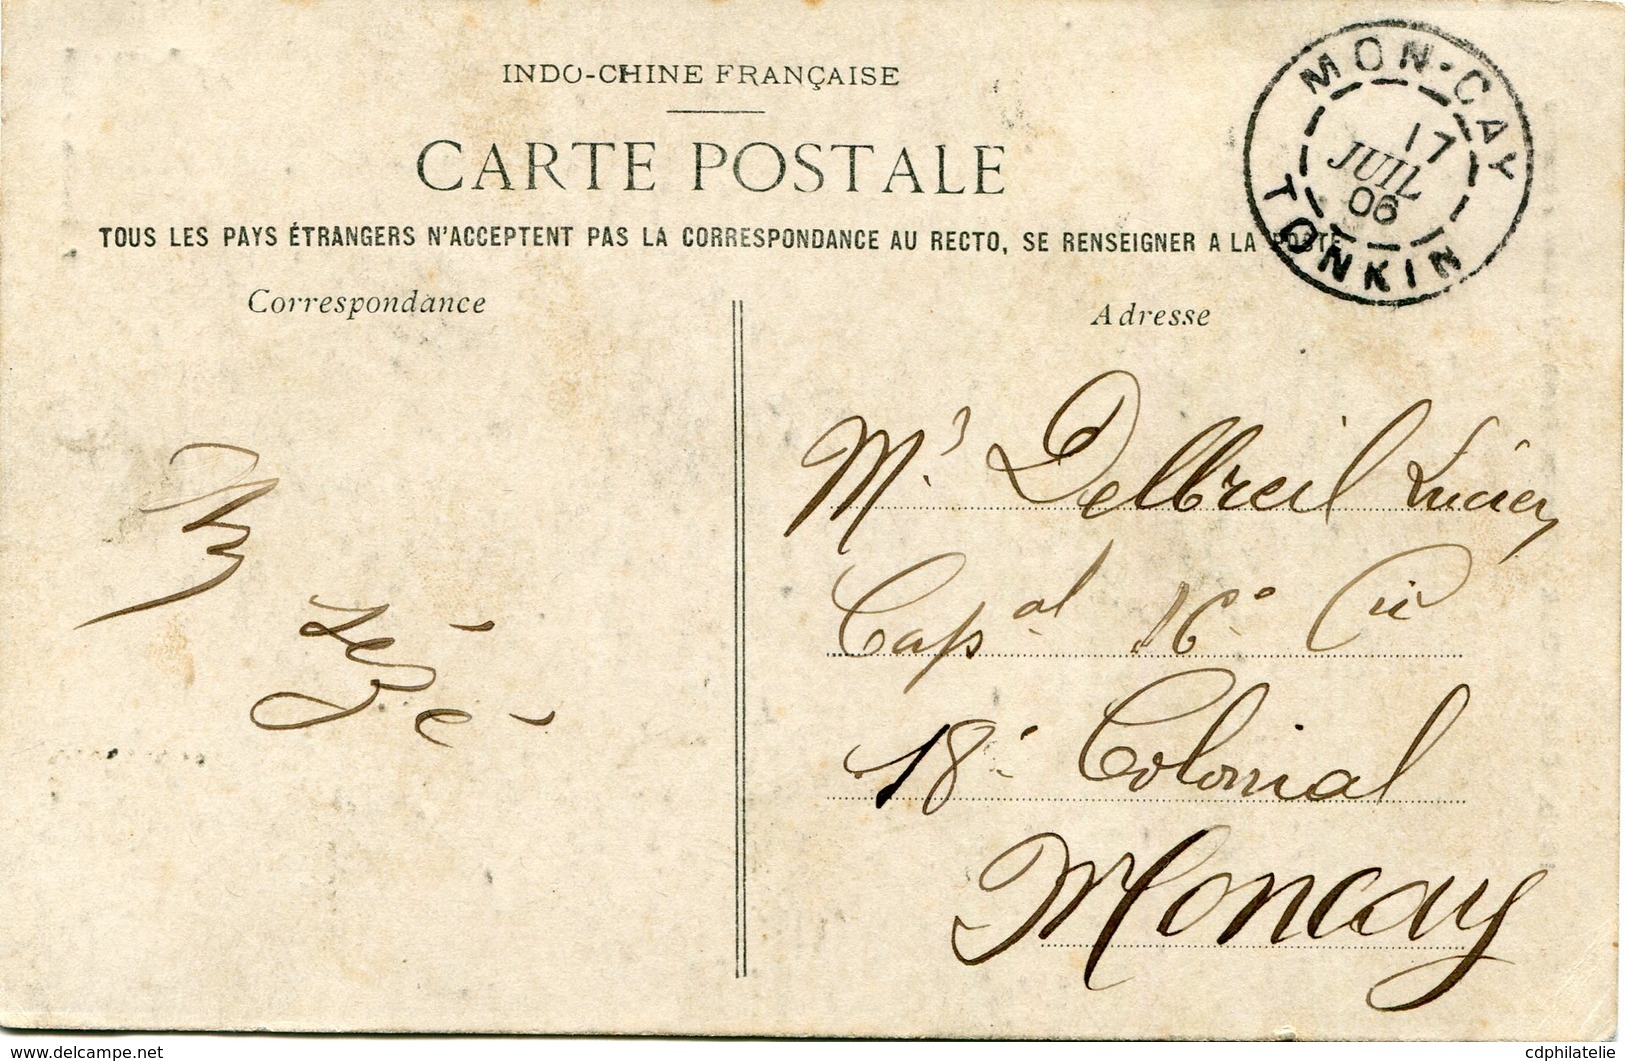 INDO-CHINE FRANÇAISE
CARTE POSTALE
TOUS LES PAYS ÉTRANGERS N'ACCEPTENT PAS LA CORRESPONDANCE AU RECTO, SE RENSEIGNER A LA POSTE
MON-CAY
17
JUIL
06
TONKIN
Correspondance
Adresse
Mr Delbreil Lucien
Capal 16e Cie
18e Colonial
Moncay
www.delcampe.net
cdphilatelie